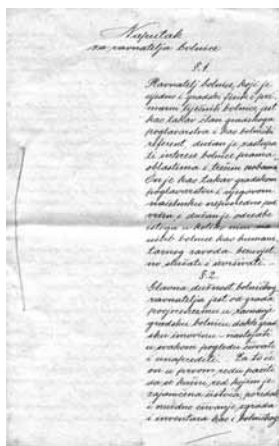 Naputak
za ravnatelja bolnice
§.1.
Ravnatelj bolnice, koji je
ujedno i gradski fizik i pri-
marni liječnik bolnice, jest
kao takav član gradskoga
poglavarstva i kao bolnički
referent, dužan je zastupa
ti interese bolnice prama
oblastima i trećim osobama.
On je kao takav gradskom
poglavarstvu i njegovom
načelniku neposredno pod
vržen i dužan je odredbe
istoga u koliko nisu na
uštrb bolnice kao human
tarnog zavoda bezuvjet
no slušati i izvršivati. –
§.2.
Glavna dužnost bolničkog
ravnatelja jest od grada
povjerenu mu
gradsku bolnicu, dakle grad
sku imovinu – nastojati
u svakom pogledu čuvati
i unaprediti. Za to će
on u prvom redu paziti
da se kućni red kojim je
zajamčena čistoća, poredak
i zgrada
i inventara kao i bolničkog